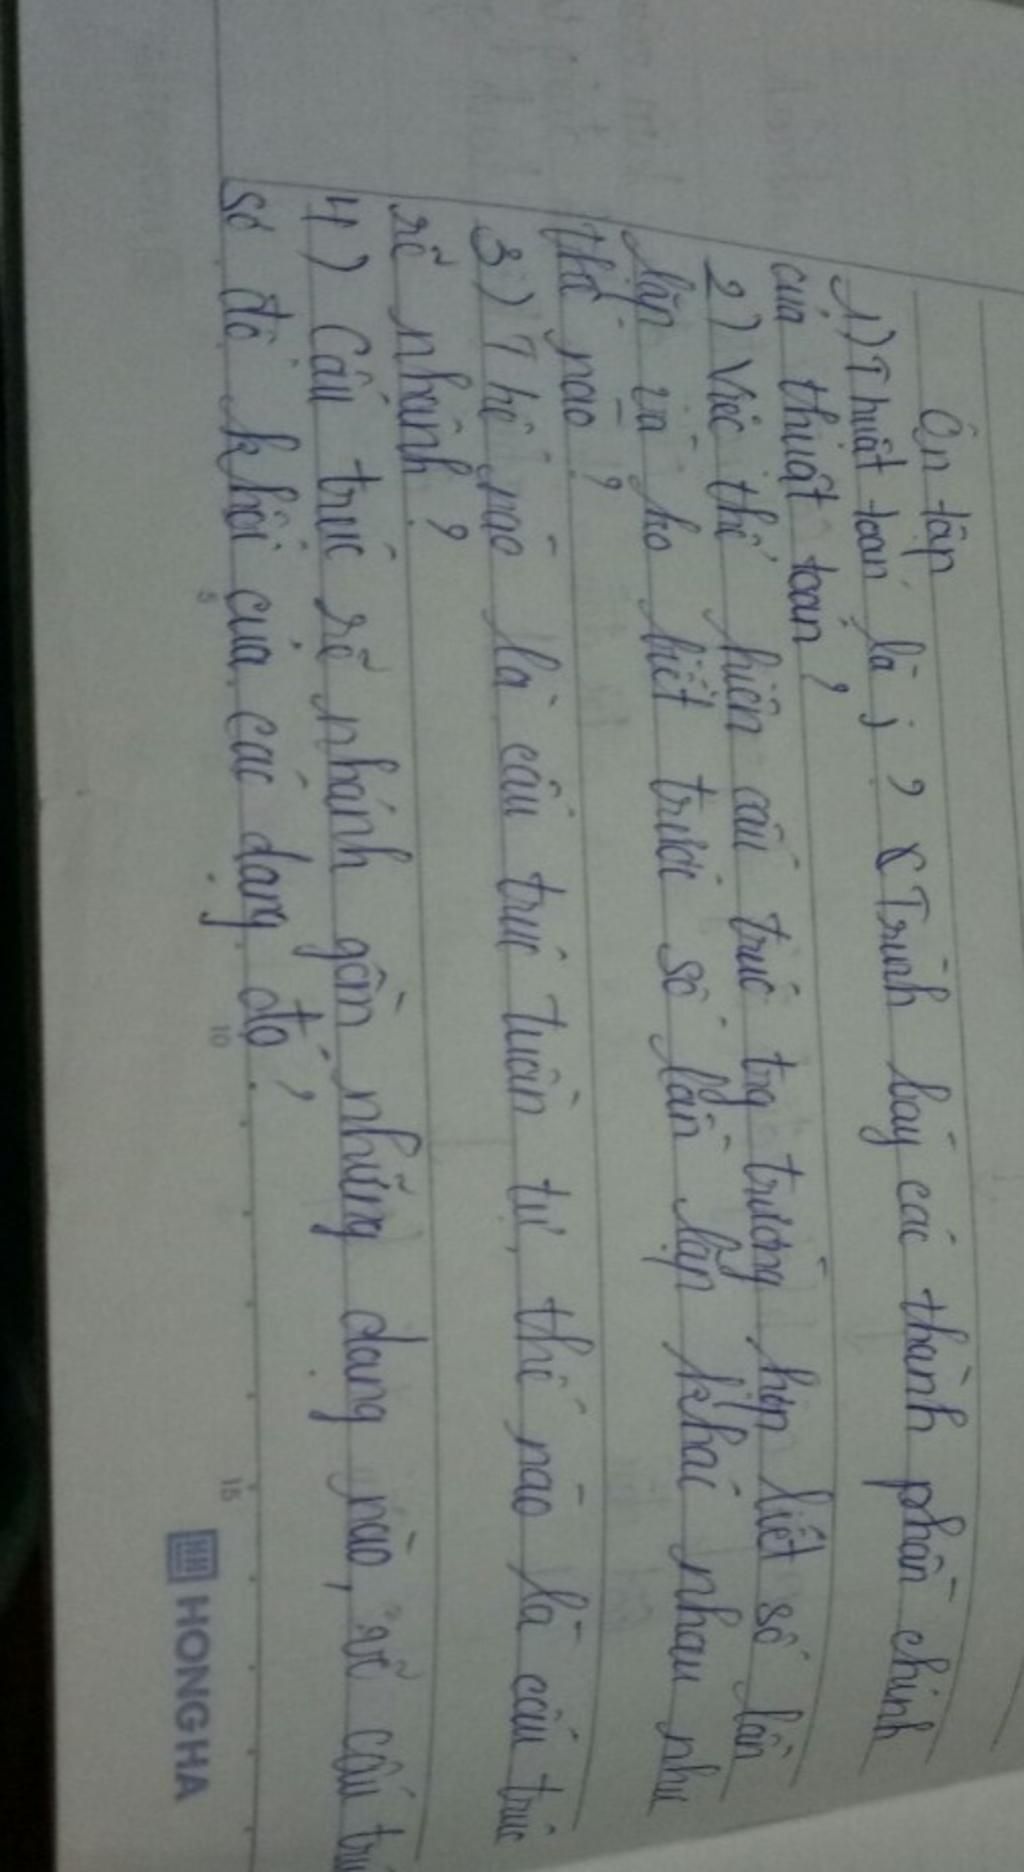 Ôn tập
1) Thuật toán là j ? & Trình bày các thành phần chính
của thuật toán ?
2) Việc thể hiện cấu trúc trg trường hợp biết số lần
lặp và ko biết trước số lần lặp khác nhau như
thế nào ?
3) Thế nào là cấu trúc tuần tự, thế nào là cấu trúc
rẽ nhánh ?
4) Cấu trúc rẽ nhánh gồm những dạng nào, vẽ cấu
sơ đồ khối của các dạng đó ?
5 10 15
HONG HA